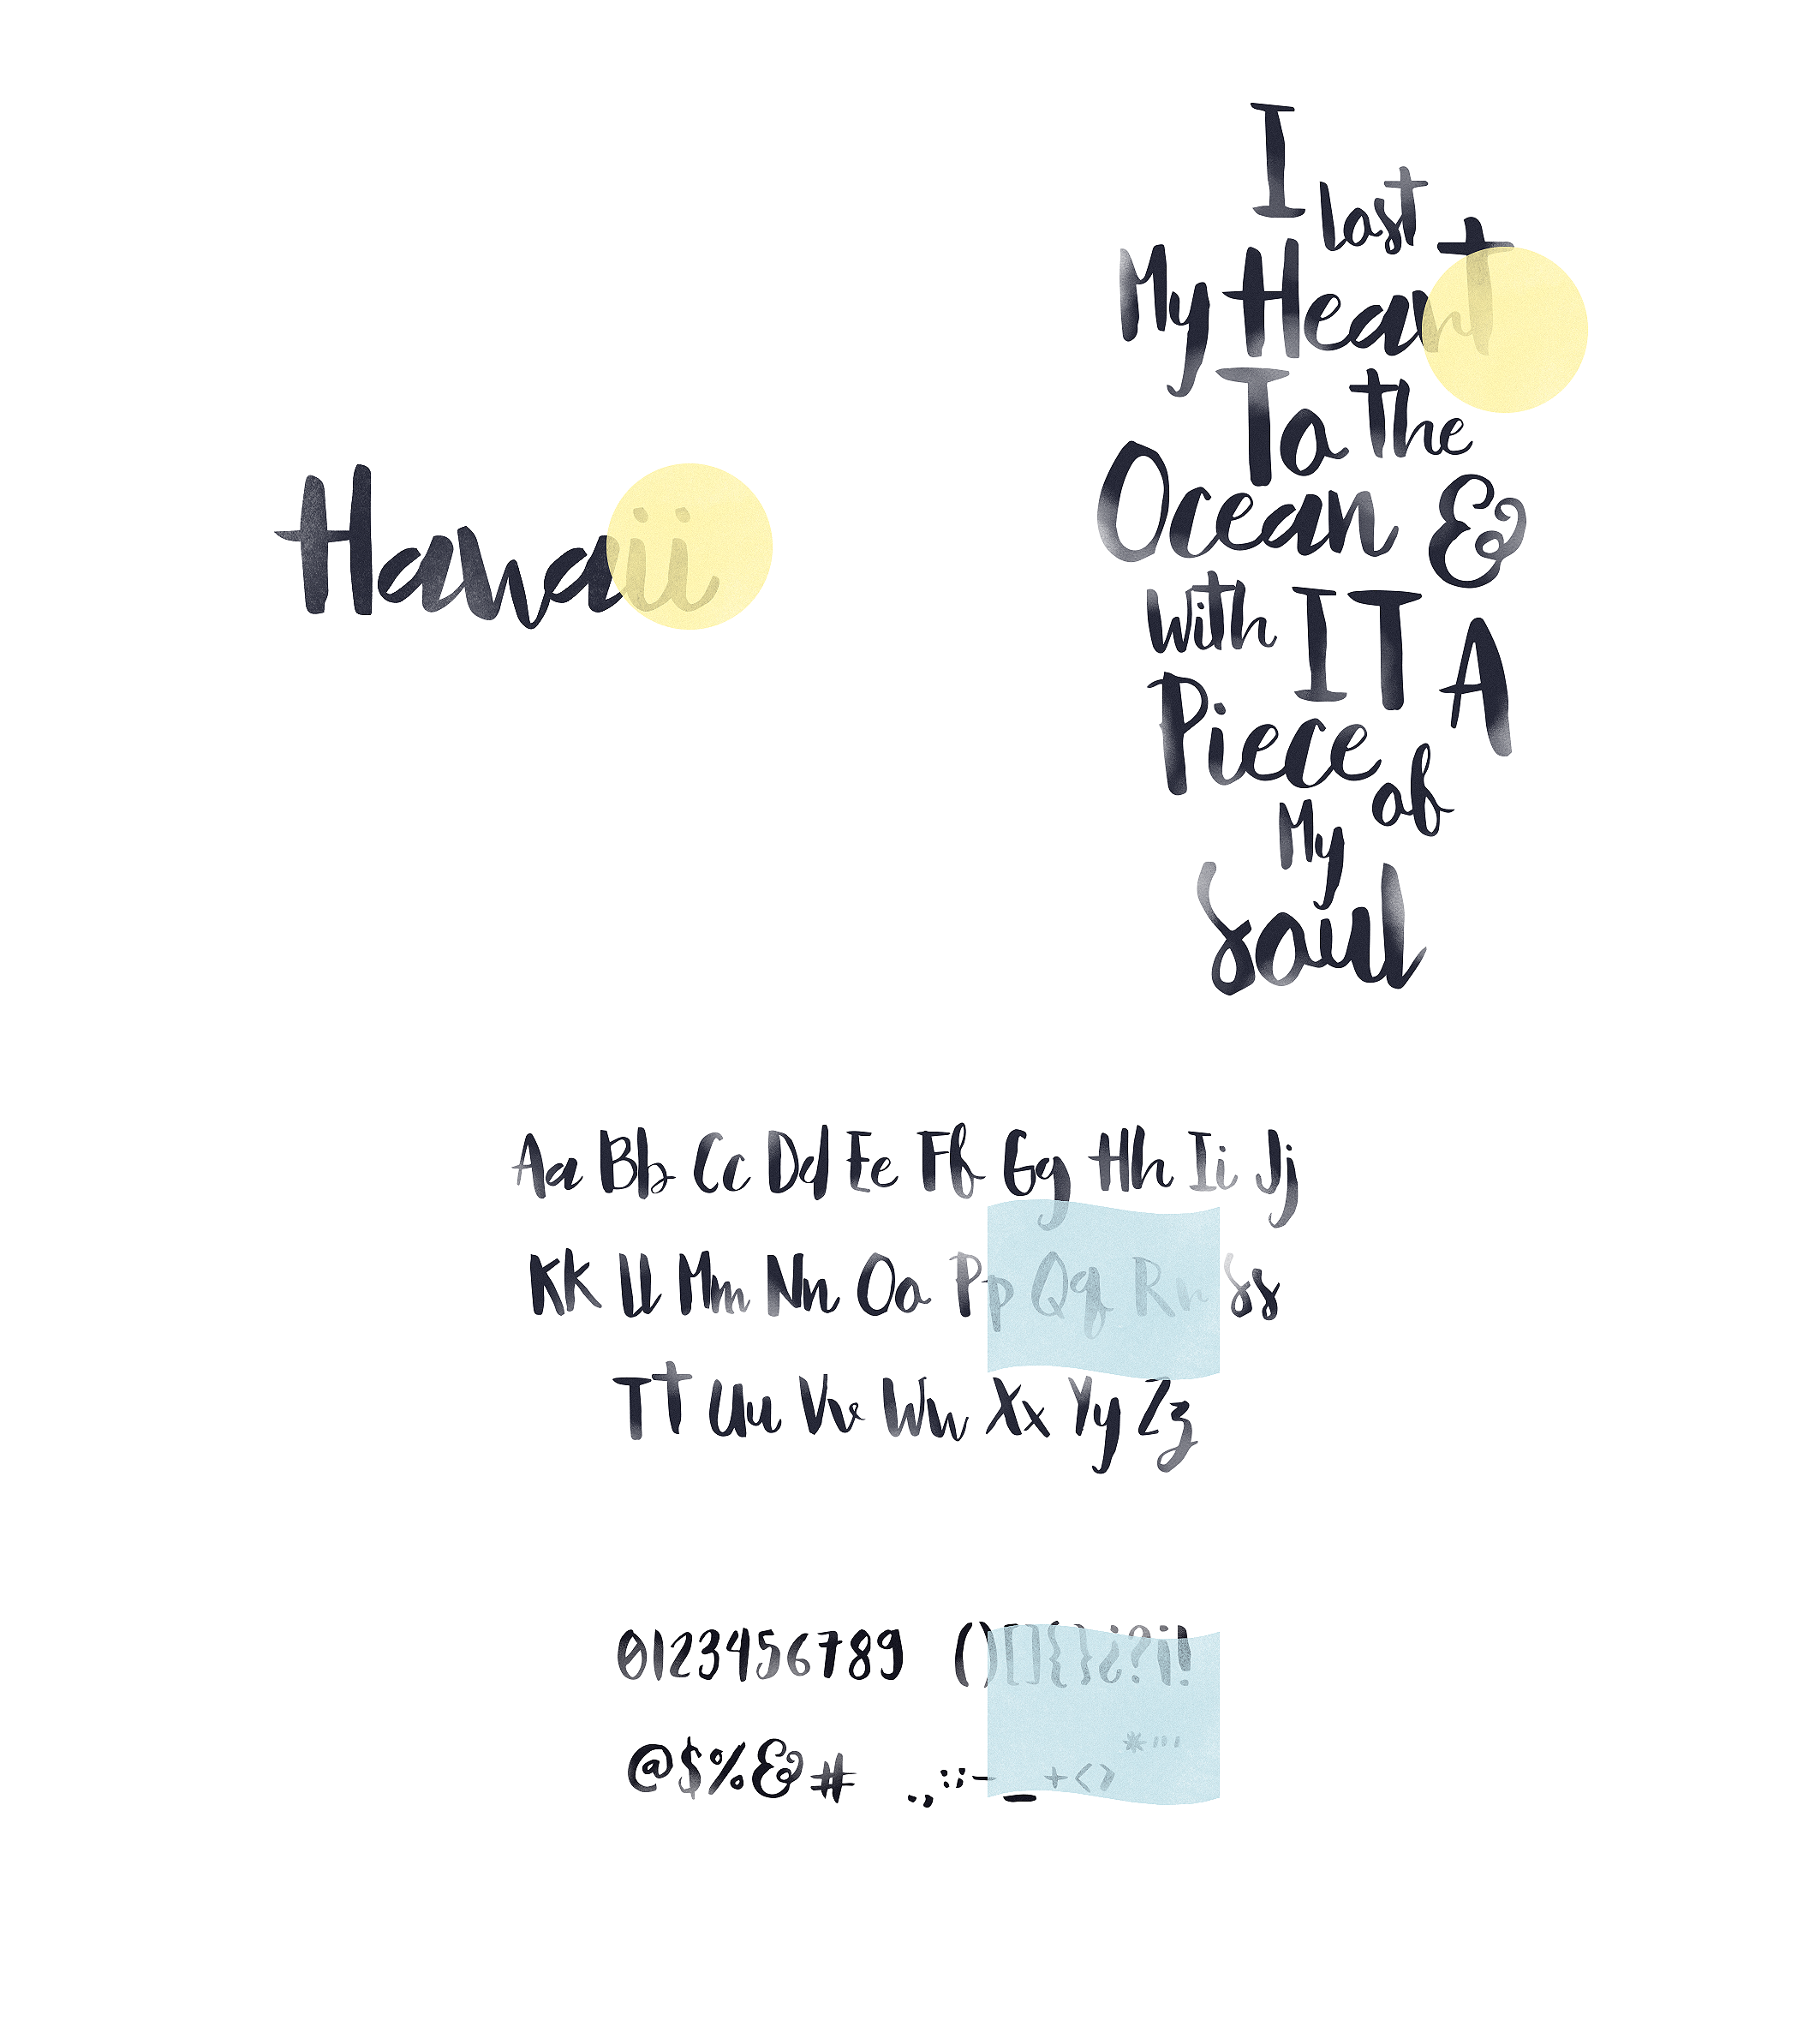 Hawaii
I lost
My Heart
To the
Ocean &
with IT A
Piece of
My
Soul
Aa Bb Cc Dd Ee Ff Gg Hh Ii Jj
Kk Ll Mm Nn Oo Pp Qq Rr Ss
Tt Uu Vv Ww Xx Yy Zz
0123456789 ()[]{}¿?¡!
@$%&# .,:;-_ +<> *"'